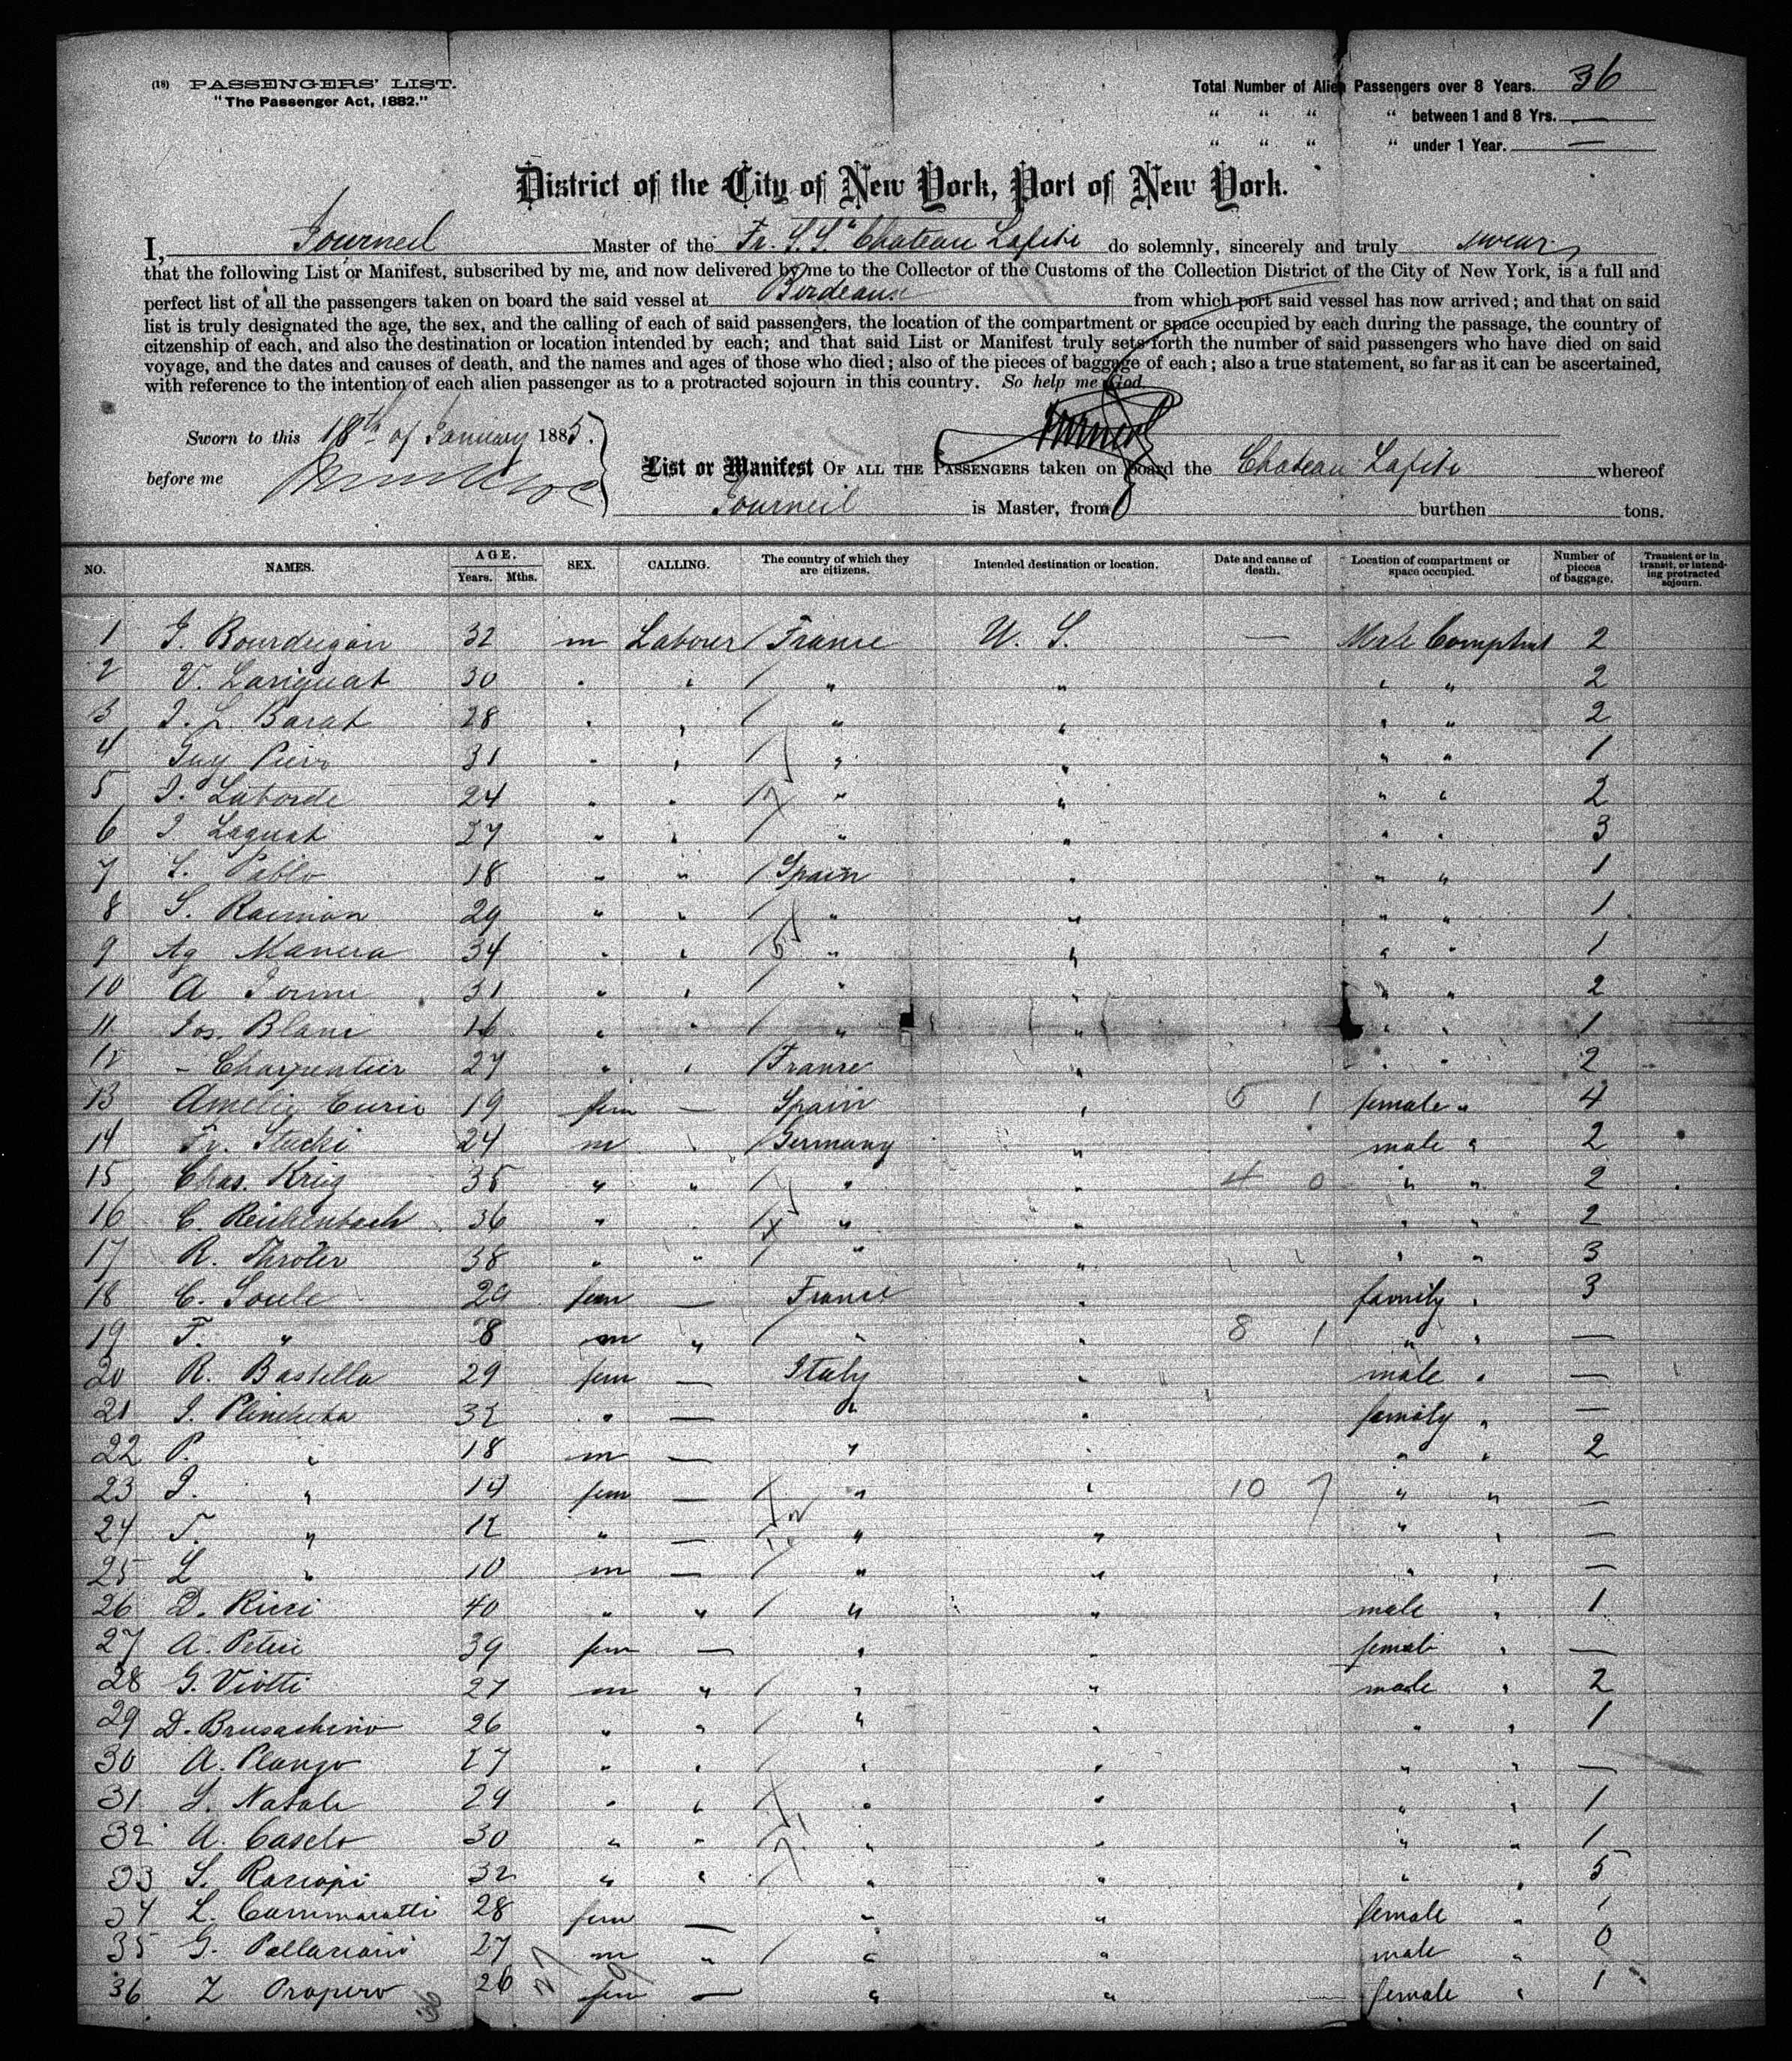 (18) PASSENGERS' LIST.
"The Passenger Act, 1882."
Total Number of Alien Passengers over 8 Years. 36
" " " " between 1 and 8 Yrs. —
" " " " under 1 Year. —
District of the City of New York, Port of New York.
I, Journeil Master of the Fr. S.S. "Chateau Lafite do solemnly, sincerely and truly swear,
that the following List or Manifest, subscribed by me, and now delivered by me to the Collector of the Customs of the Collection District of the City of New York, is a full and
perfect list of all the passengers taken on board the said vessel at Bordeaux from which port said vessel has now arrived; and that on said
list is truly designated the age, the sex, and the calling of each of said passengers, the location of the compartment or space occupied by each during the passage, the country of
citzenship of each, and also the destination or location intended by each; and that said List or Manifest truly sets forth the number of said passengers who have died on said
voyage, and the dates and causes of death, and the names and ages of those who died; also of the pieces of baggage of each; also a true statement, so far as it can be ascertained,
with reference to the intention of each alien passenger as to a protracted sojourn in this country. So help me God
Sworn to this 18th of January 1885.
before me
List or Manifest OF ALL THE PASSENGERS taken on board the Chateau Lafite whereof
Journeil is Master, from burthen tons.
NO. NAMES. AGE. Years. Mths. SEX. CALLING. The country of which they are citizens. Intended destination or location. Date and cause of death. Location of compartment or space occupied. Number of pieces of baggage. Transient or in transit, or intending protracted sojourn.
1 J. Bourdugan 32 m Labourer / France U. S. — Male Comptmt 2
2 V. Lariguat 30 " " / " " " " 2
3 J. L. Barat 28 " " / " " " " 2
4 Guy Piero 31 " " / " " " " 1
5 J. Laborde 24 " " / 7 " " " " 2
6 J Laguat 27 " " / " " " " 3
7 L. Pablo 18 " " / Spain " " " 1
8 S. Raimon 29 " " / " " " " 1
9 Ag Manera 34 " " / 5 " " " " 1
10 A 31 " " / " " " " 2
11 Jos. Blanc 16 " " / " " " " 1
12 - Charpentier 27 " " / France " " " 2
13 Amelie 19 fem — Spain " 5 1 female " 4
14 Fr. Stucki 24 m " / Germany " male " 2
15 Chas. Krieg 35 " " / " " 4 0 " " 2
16 C. Reichenbach 36 " " / 4 " " " " 2
17 R. Throter 38 " " / " " " " 3
18 C. Soule 29 fem — France " family " 3
19 F. " 8 m " / " " 8 1 " " —
20 R. Bastella 29 fem — Italy " male " —
21 J. Plincheta 32 " — " " family " —
22 P. " 18 m — " " " " 2
23 J. " 14 fem — / " " 10 7 " " —
24 F. " 12 " — / " " " " —
25 L " 10 m — / " " " " —
26 D. Ricci 40 " " / " " male " 1
27 A. Petri 39 fem — " " female " —
28 G. Viotti 27 m " / " " male " 2
29 D. Brusachino 26 " " / " " " " 1
30 A. Plango 27 " " / " " " " —
31 L. Natale 29 " " / " " " " 1
32 A. Caselo 30 " " / " " " " 1
33 S. Raciopi 32 " " / " " " " 5
34 L. Cammaratti 28 fem — " " female " 1
35 G. Pallaciani 27 m " / " " male " 0
36 Z Propero 26 fem — " " female " 1
36 27